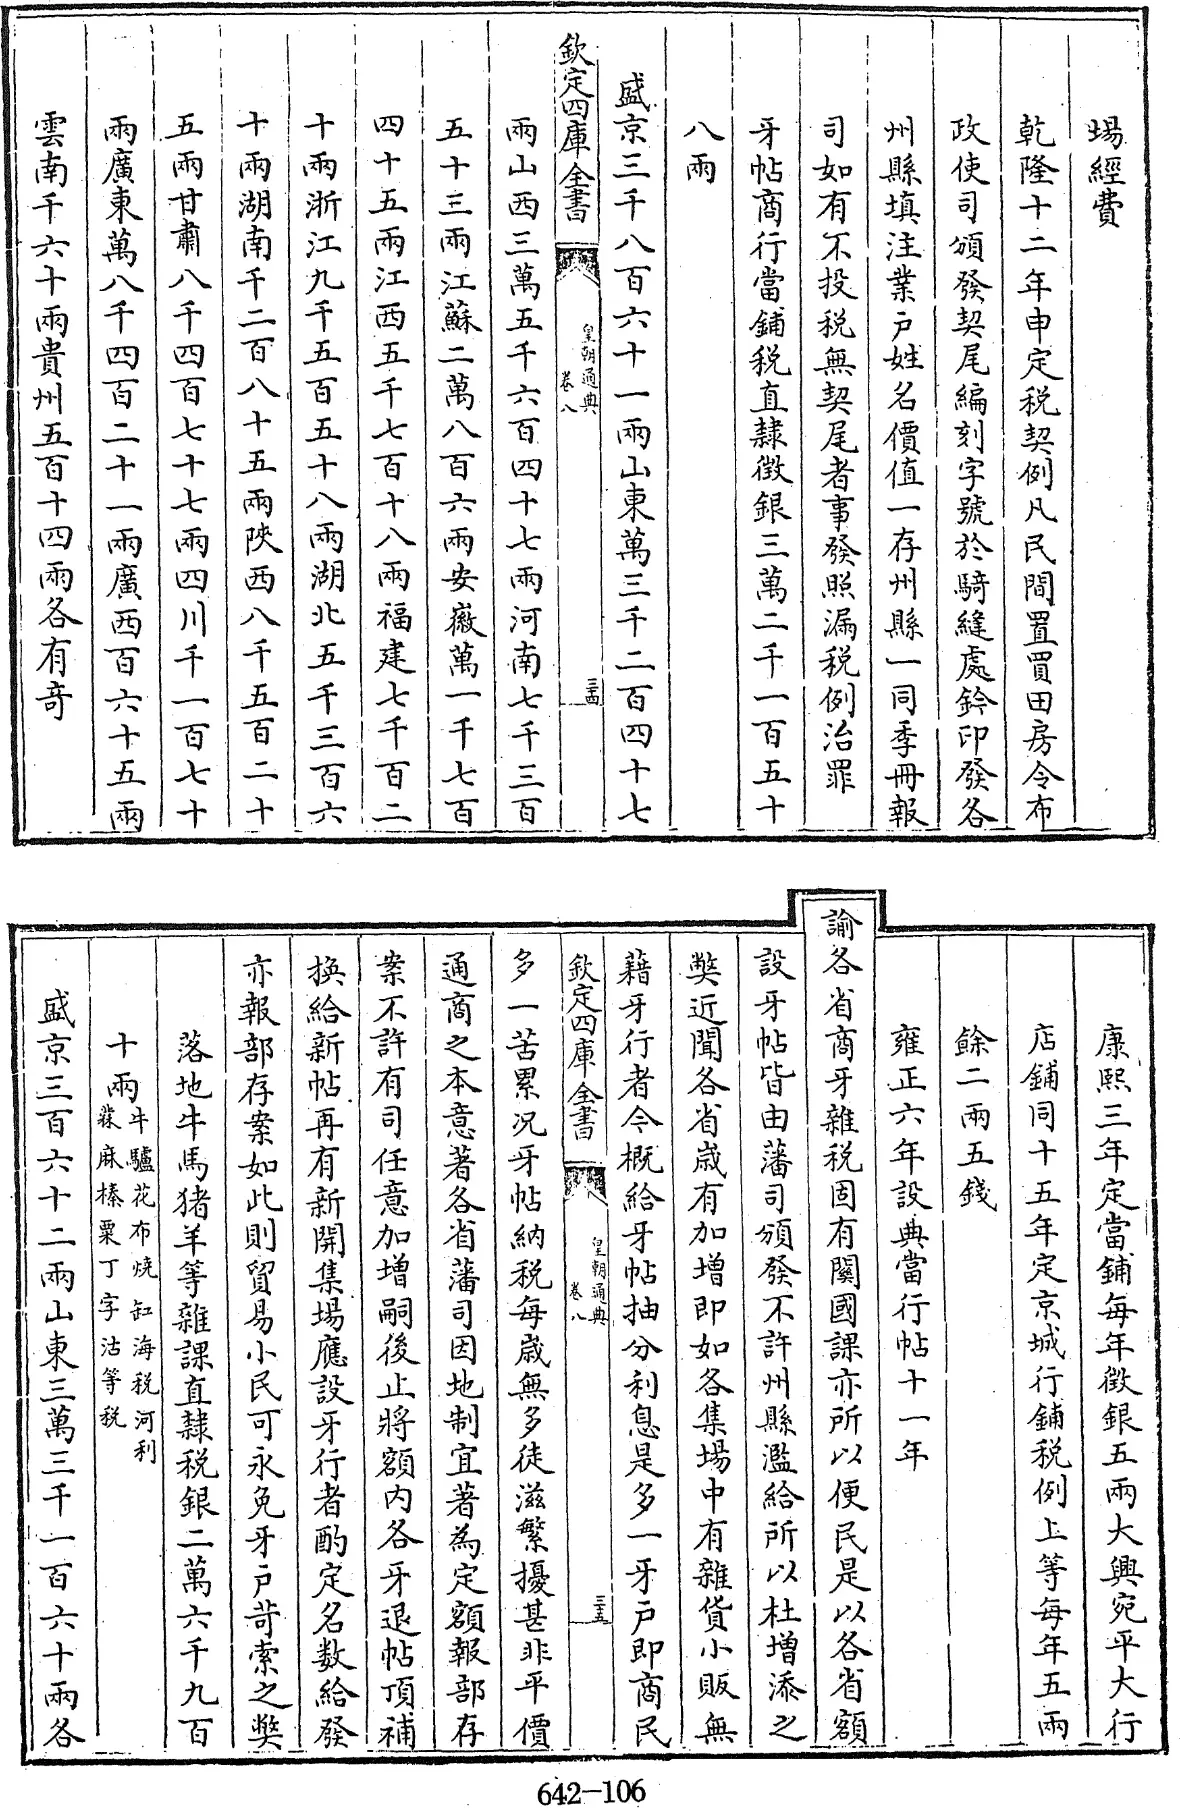 場經費
乾隆十二年申定稅契例凡民間置買田房令布
政使司頒發契尾編刻字號於騎縫處鈐印發各
州縣填注業戶姓名價值一存州縣一同季冊報
司如有不投稅無契尾者事發照漏稅例治罪
牙帖商行當鋪稅直隸徵銀三萬二千一百五十
八兩
盛京三千八百六十一兩山東萬三千二百四十七
欽定四庫全書
皇朝通典
卷八
三十四
兩山西三萬五千六百四十七兩河南七千三百
五十三兩江蘇二萬八百六兩安徽萬一千七百
四十五兩江西五千七百十八兩福建七千百二
十兩浙江九千五百五十八兩湖北五千三百六
十兩湖南千二百八十五兩陝西八千五百二十
五兩甘肅八千四百七十七兩四川千一百七十
兩廣東萬八千四百二十一兩廣西百六十五兩
雲南千六十兩貴州五百十四兩各有奇
康熙三年定當鋪每年徵銀五兩大興宛平大行
店鋪同十五年定京城行鋪稅例上等每年五兩
餘二兩五錢
雍正六年設典當行帖十一年
諭各省商牙雜稅固有關國課亦所以便民是以各省額
設牙帖皆由藩司頒發不許州縣濫給所以杜增添之
弊近聞各省歲有加增即如各集場中有雜貨小販無
藉牙行者今概給牙帖抽分利息是多一牙戶即商民
欽定四庫全書
皇朝通典
卷八
三十五
多一苦累況牙帖納稅每歲無多徒滋繁擾甚非平價
通商之本意著各省藩司因地制宜著為定額報部存
案不許有司任意加增嗣後止將額內各牙退帖頂補
換給新帖再有新開集場應設牙行者酌定名數給發
亦報部存案如此則貿易小民可永免牙戶苛索之弊
落地牛馬猪羊等雜課直隸稅銀二萬六千九百
十兩牛驢花布燒缸海稅河利
蔴麻榛栗丁字沽等稅
盛京三百六十二兩山東三萬三千一百六十兩各
642-106